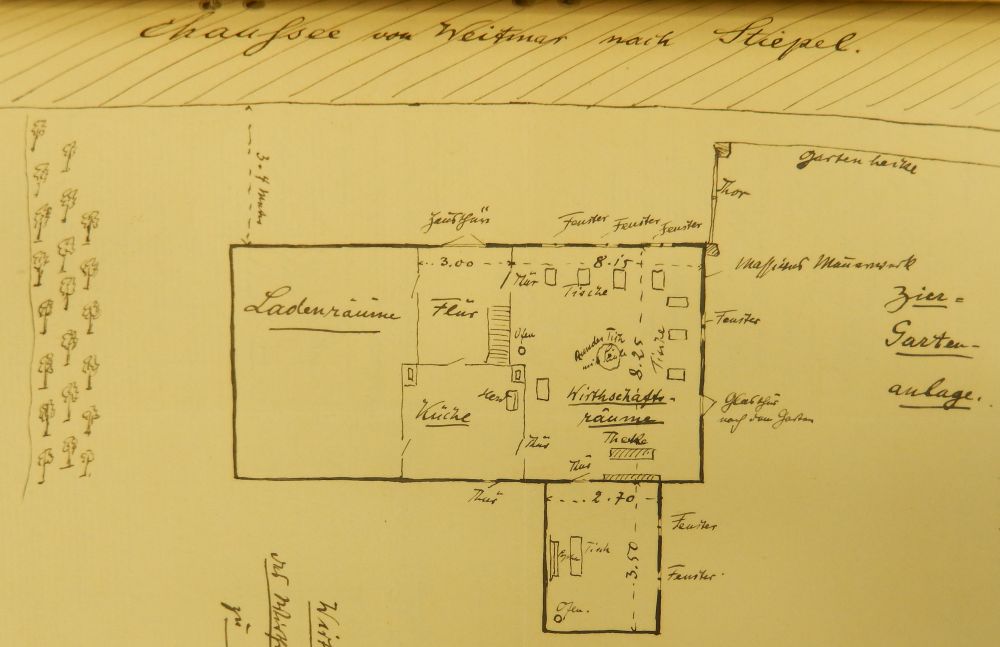 Chaussee von Weitmar nach Stiepel.
Gartenhecke
3.4 Meter
Thor
Hausthür
Fenster
Fenster
Fenster
Massives Mauerwerk
3.00
8.15
Thür
Tische
Zier-
Garten-
anlage.
Ladenräume
Flur
Fenster
Ofen
Runder Tisch
mit Säule
8.25
Tische
Herd
Wirthschafts-
räume
Glasthür
nach dem Garten
Küche
Theke
Thür
Thür
Thür
2.70
Fenster
Tisch
3.50
Fenster
Ofen.
des
zu